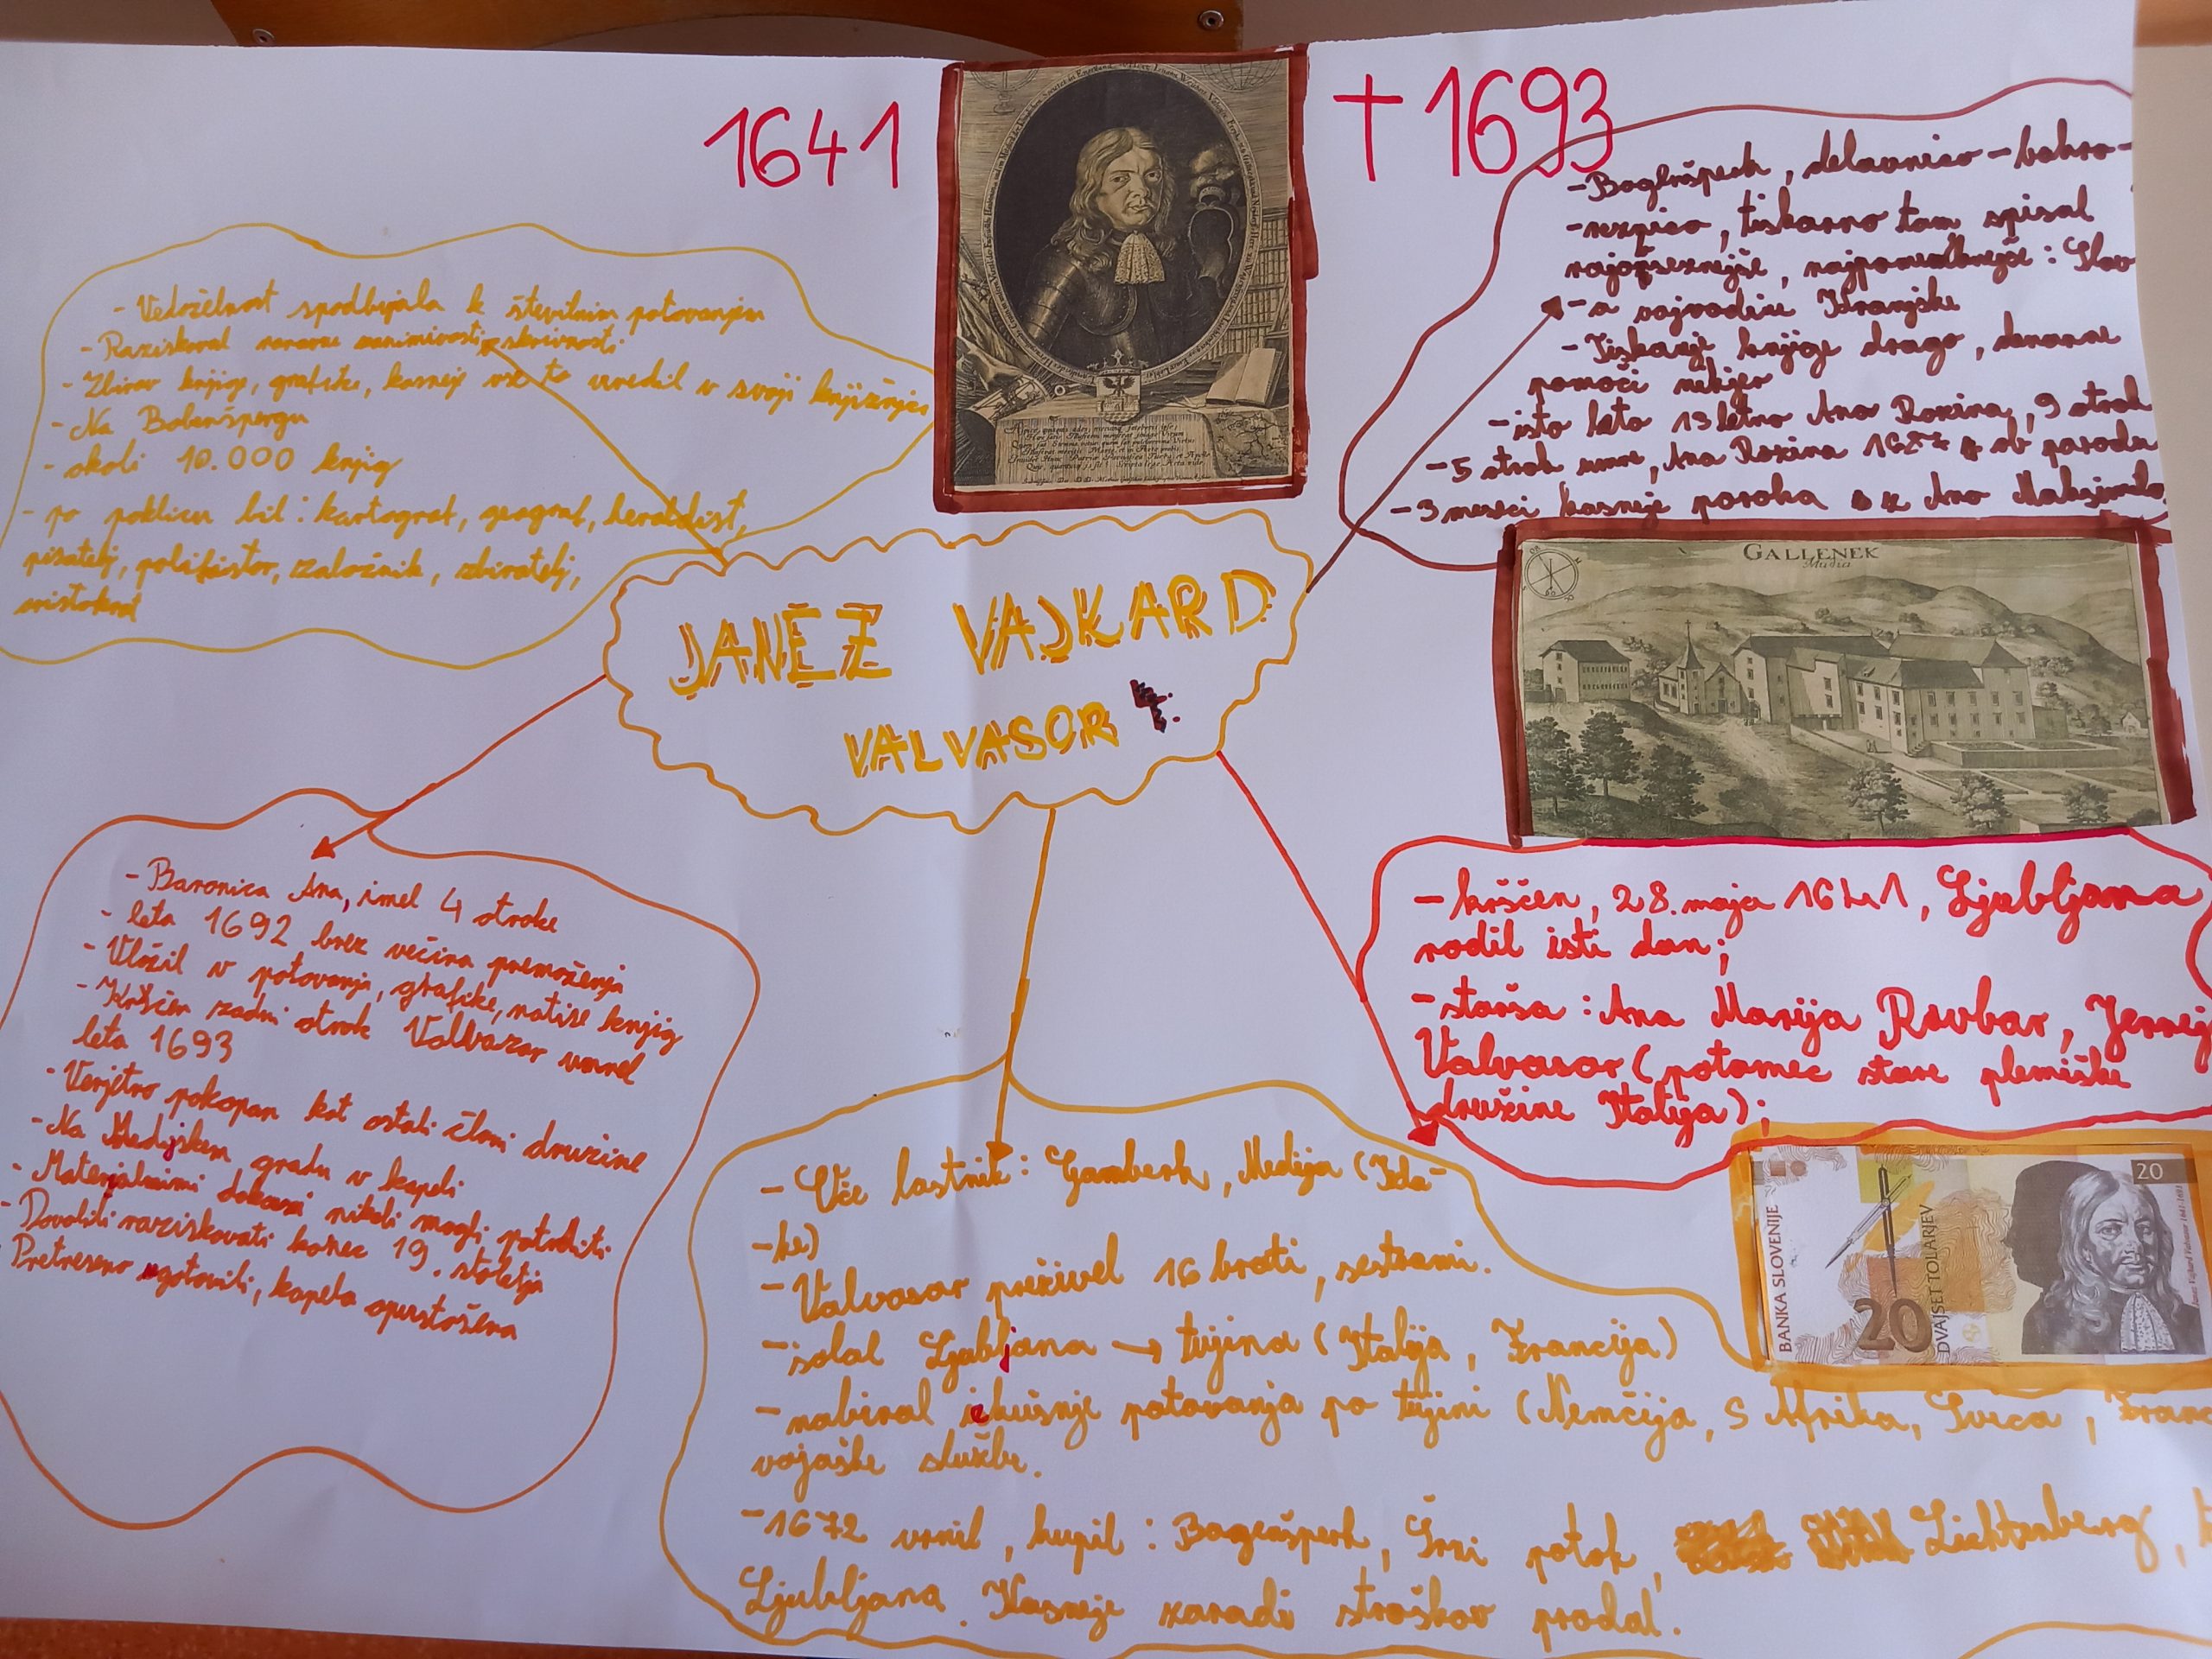 1641
† 1693
- Vedoželnost spodbujala k številnim potovanjem
- Raziskoval naravne zanimivosti, skrivnosti
- Zbirav knjige, grafike, kasneje vse to uredil v svoji knjižnjici
- Na Bobenšpergu
- okoli 10.000 knjig
- po poklicu bil : kartograf, geograf, heraldist,
pisatelj, polihistor, založnik, zbiratelj,
aristokrat
- Bogenšperk, delavnico - bakro-
- rezpico, tiskarno tam spisal
najobsežnejše, najpomembnejše : Slav
- a vojvodine Kranjske
- Tiskanje knjige drago, denarne
pomoči nikjer
- isto leto 13 letno Ana Rozina, 9 otrok
- 5 otrok umre, Ana Rozina ob porodu
- 3 meseci kasneje poroka z Ano Maksimilo
GALLENEK
JANEZ VAJKARD
VALVASOR
- Baronica Ana, imel 4 otroke
- leta 1692 brez večina premoženja
- Vložil v potovanja, grafike, natise knjig
- Krščen zadni otrok Valvazor umrel
leta 1693
- Verjetno pokopan kot ostali člani družine
- Na Medijskem gradu v kapeli
- Materjalnimi dokazi nikoli mogli potrditi
- Dovolili raziskovati konec 19. stoletja
Pretreseno ugotovili, kapela opustošena
- krščen, 28. maja 1641, Ljubljana
rodil isti dan;
- starša : Ana Marija Ravbar, Jernej
Valvasor (potomec stare plemiške
družine Italija);
- Oče lastnik : Gamberk, Medija (Izla-
- ke)
- Valvasor preživel 16 brati, sestrami.
- šolal Ljubljana → tujina (Italija, Francija)
- nabiral izkušnje potovanja po tujini (Nemčija, S Afrika, Švica, Fran
vojaške službe.
- 1672 vrnil, kupil : Bogenšperk, Črni potok, Lichtenberg,
Ljubljana. Kasneje zaradi stroškov prodal.
BANKA SLOVENIJE
20
DVAJSET TOLARJEV
20